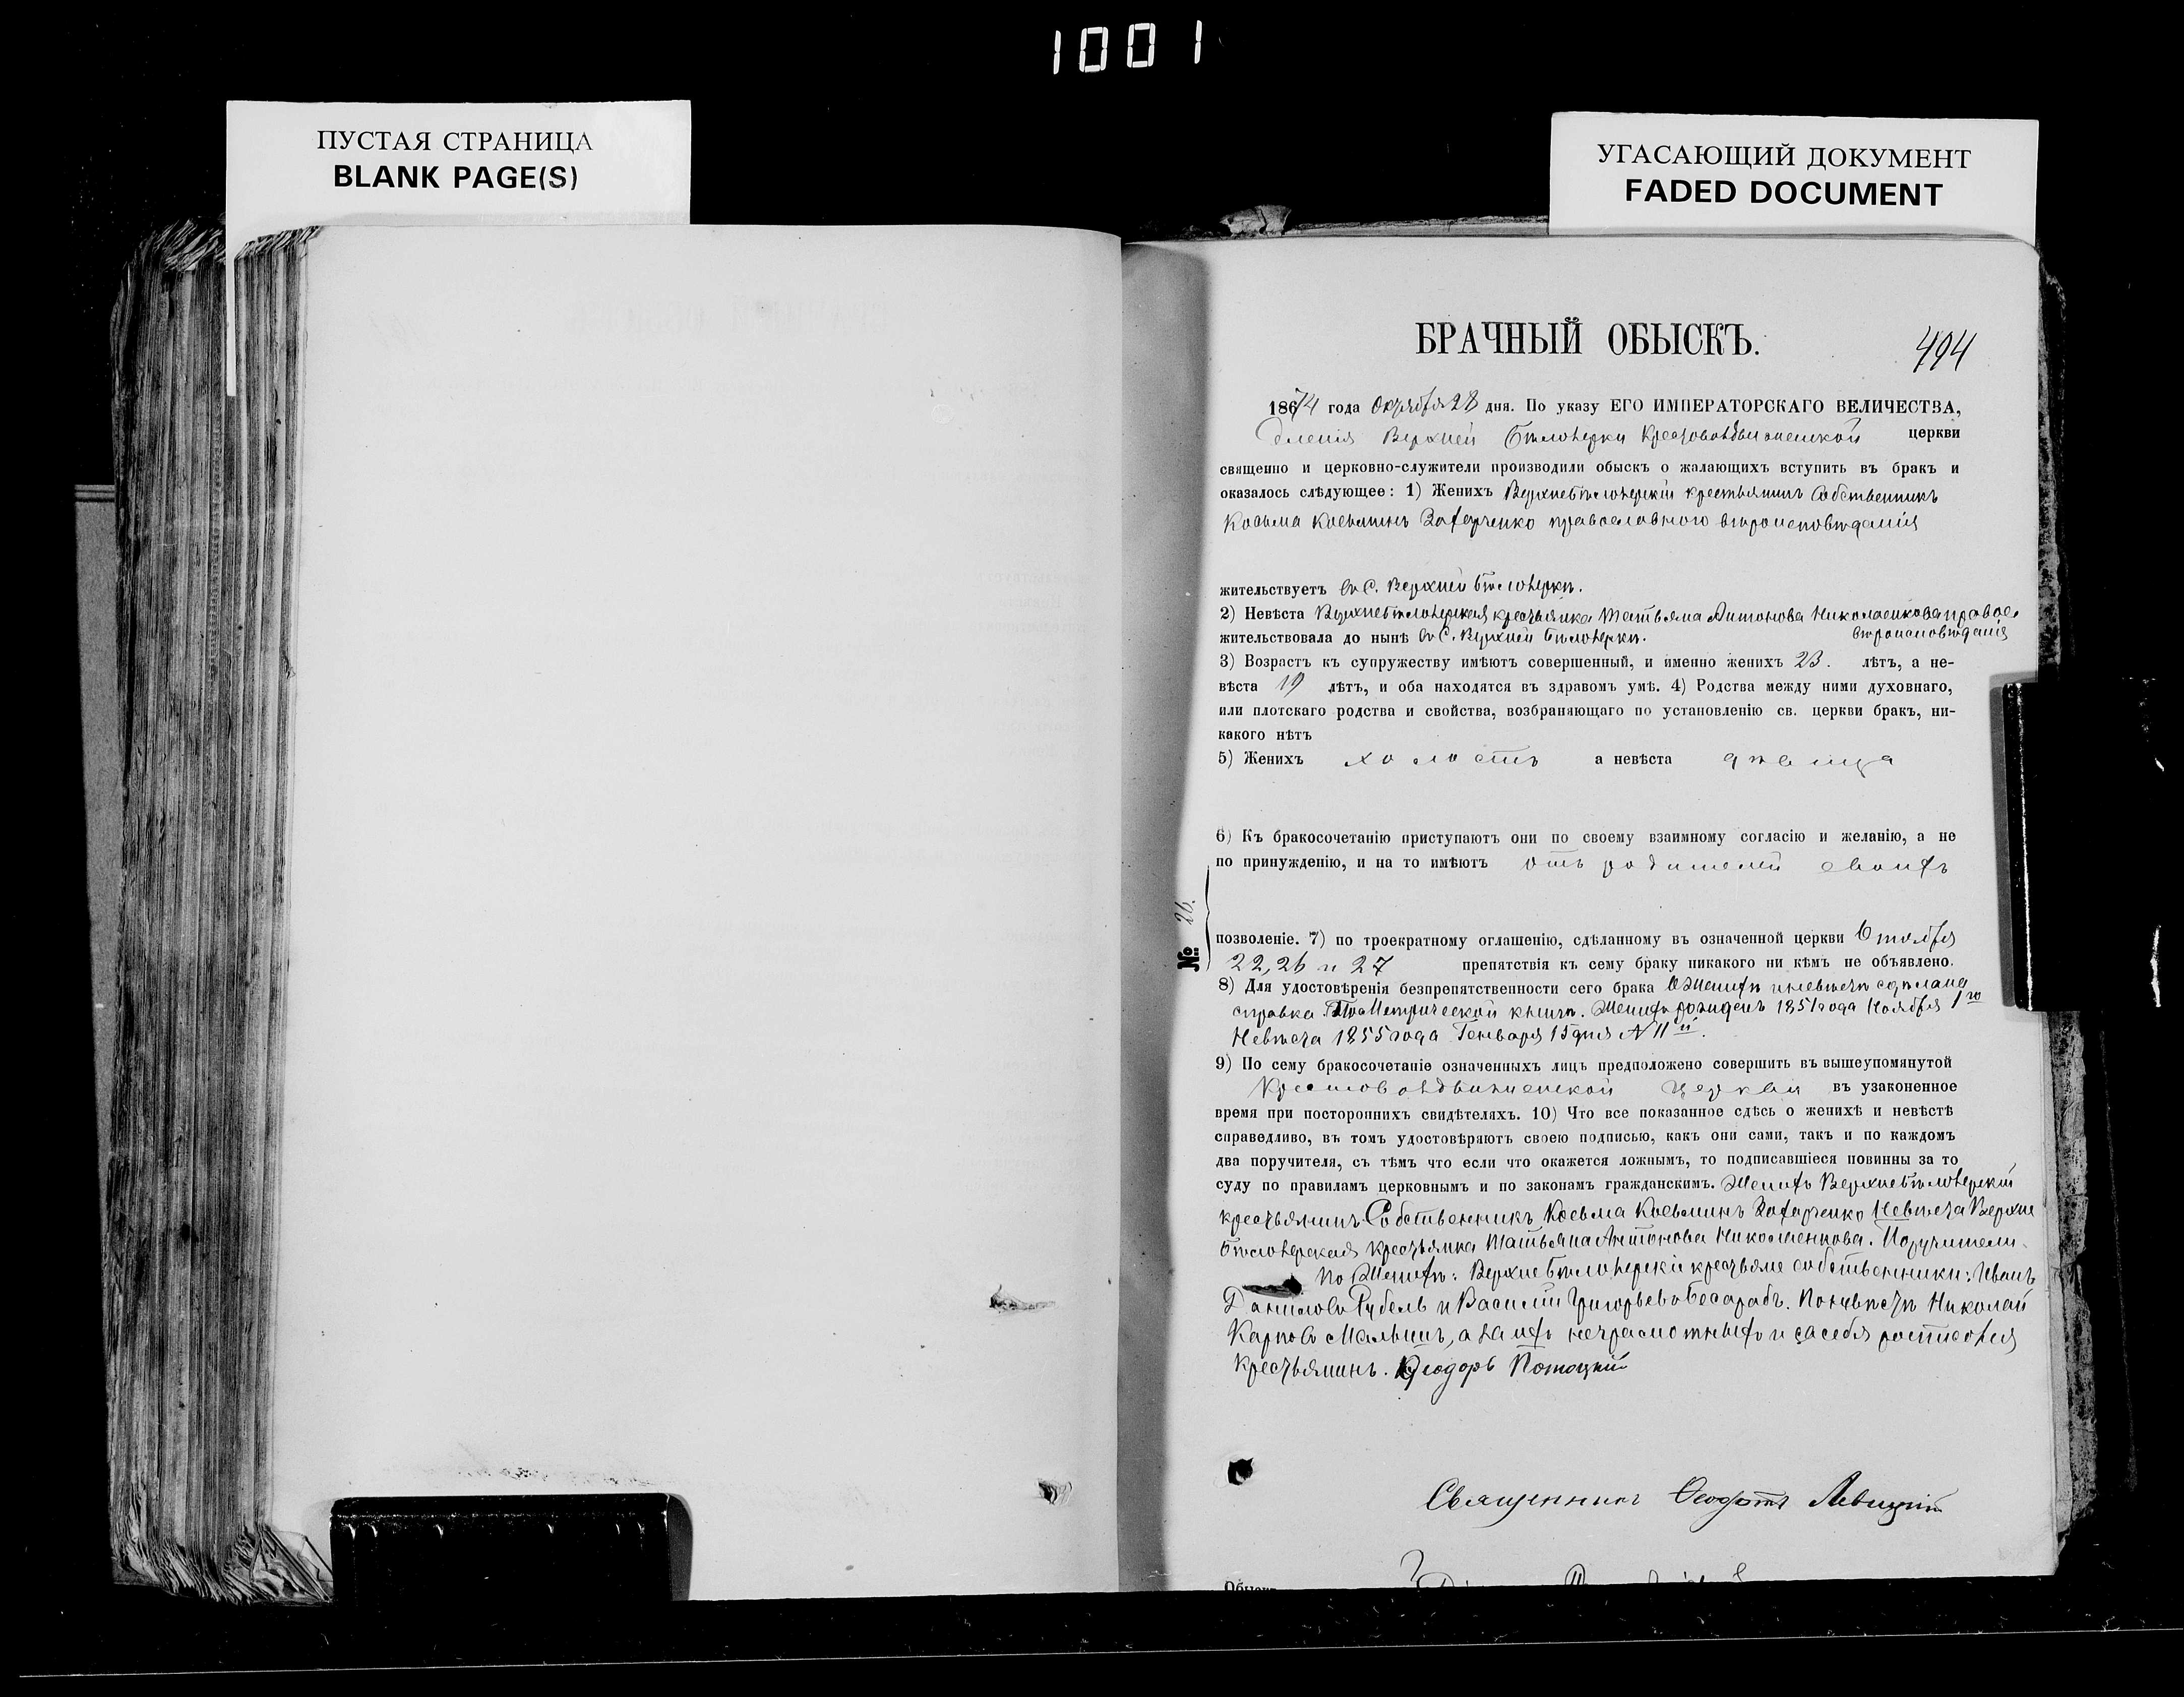 1001
ПУСТАЯ СТРАНИЦА
BLANK PAGE(S)
УГАСАЮЩИЙ ДОКУМЕНТ
FADED DOCUMENT
БРАЧНЫЙ ОБЫСКЪ.
494
1874 года Октября 28 дня. По указу ЕГО ИМПЕРАТОРСКАГО ВЕЛИЧЕСТВА,
Верхней Бѣлозерки Крестовоздвиженской церкви
священно и церковно-служители производили обыскъ о жалающихъ вступить въ бракъ и
оказалось слѣдующее: 1) Женихъ Верхнебѣлозерскій крестьянинъ Собственникъ
Косьма Косьминъ Захарченко православного вѣроисповѣданія
жительствуетъ въ С. Верхней Бѣлозеркѣ.
2) Невѣста Верхнебѣлозерская крестьянка Татьяна Антонова Николаенкова правос.
вѣроисповѣданія
жительствовала до нынѣ въ С. Верхней Бѣлозеркѣ.
3) Возрастъ къ супружеству имѣютъ совершенный, и именно женихъ 23. лѣтъ, а не-
вѣста 19 лѣтъ, и оба находятся въ здравомъ умѣ. 4) Родства между ними духовнаго,
или плотскаго родства и свойства, возбраняющаго по установленію св. церкви бракъ, ни-
какого нѣтъ
5) Женихъ холостъ а невѣста дѣвица
6) Къ бракосочетанію приступаютъ они по своему взаимному согласію и желанію, а не
по принужденію, и на то имѣютъ отъ родителей своихъ
№ 26.
позволеніе. 7) по троекратному оглашенію, сдѣланному въ означенной церкви
22, 26 и 27 препятствія къ сему браку никакого ни кѣмъ не объявлено.
8) Для удостовѣренія безпрепятственности сего брака О Женихѣ и невѣстѣ сдѣлана
справка По Метрической книгѣ. Женихъ рожденъ 1851 года Ноября 1го
Невѣста 1855 года Генваря 15 дня № 11й.
9) По сему бракосочетаніе означенныхъ лицъ предположено совершить въ вышеупомянутой
Крестовоздвиженской церкви въ узаконенное
время при постороннихъ свидѣтеляхъ. 10) Что все показанное сдѣсь о женихѣ и невѣстѣ
справедливо, въ томъ удостовѣряютъ своею подписью, какъ они сами, такъ и по каждомъ
два поручителя, съ тѣмъ что если что окажется ложнымъ, то подписавшіеся повинны за то
суду по правиламъ церковнымъ и по законамъ гражданскимъ. Женихъ Верхнебѣлозерскій
крестьянинъ Собственникъ Косьма Косьминъ Захарченко Невѣста Верхне
бѣлозерская крестьянка Татьяна Антонова Николаенкова. Поручители
по Женихѣ: Верхнебѣлозерскіе крестьяне собственники: Иванъ
Даниловъ Рубель и Василій Григорьевъ Бесарабъ. По невѣстѣ Николай
Карповъ Мальинъ, а за ихъ неграмотныхъ и за себя росписался
крестьянинъ. Ѳеодоръ Потоцкій
Священникъ Ѳеодотъ Левицкій
Обыскъ